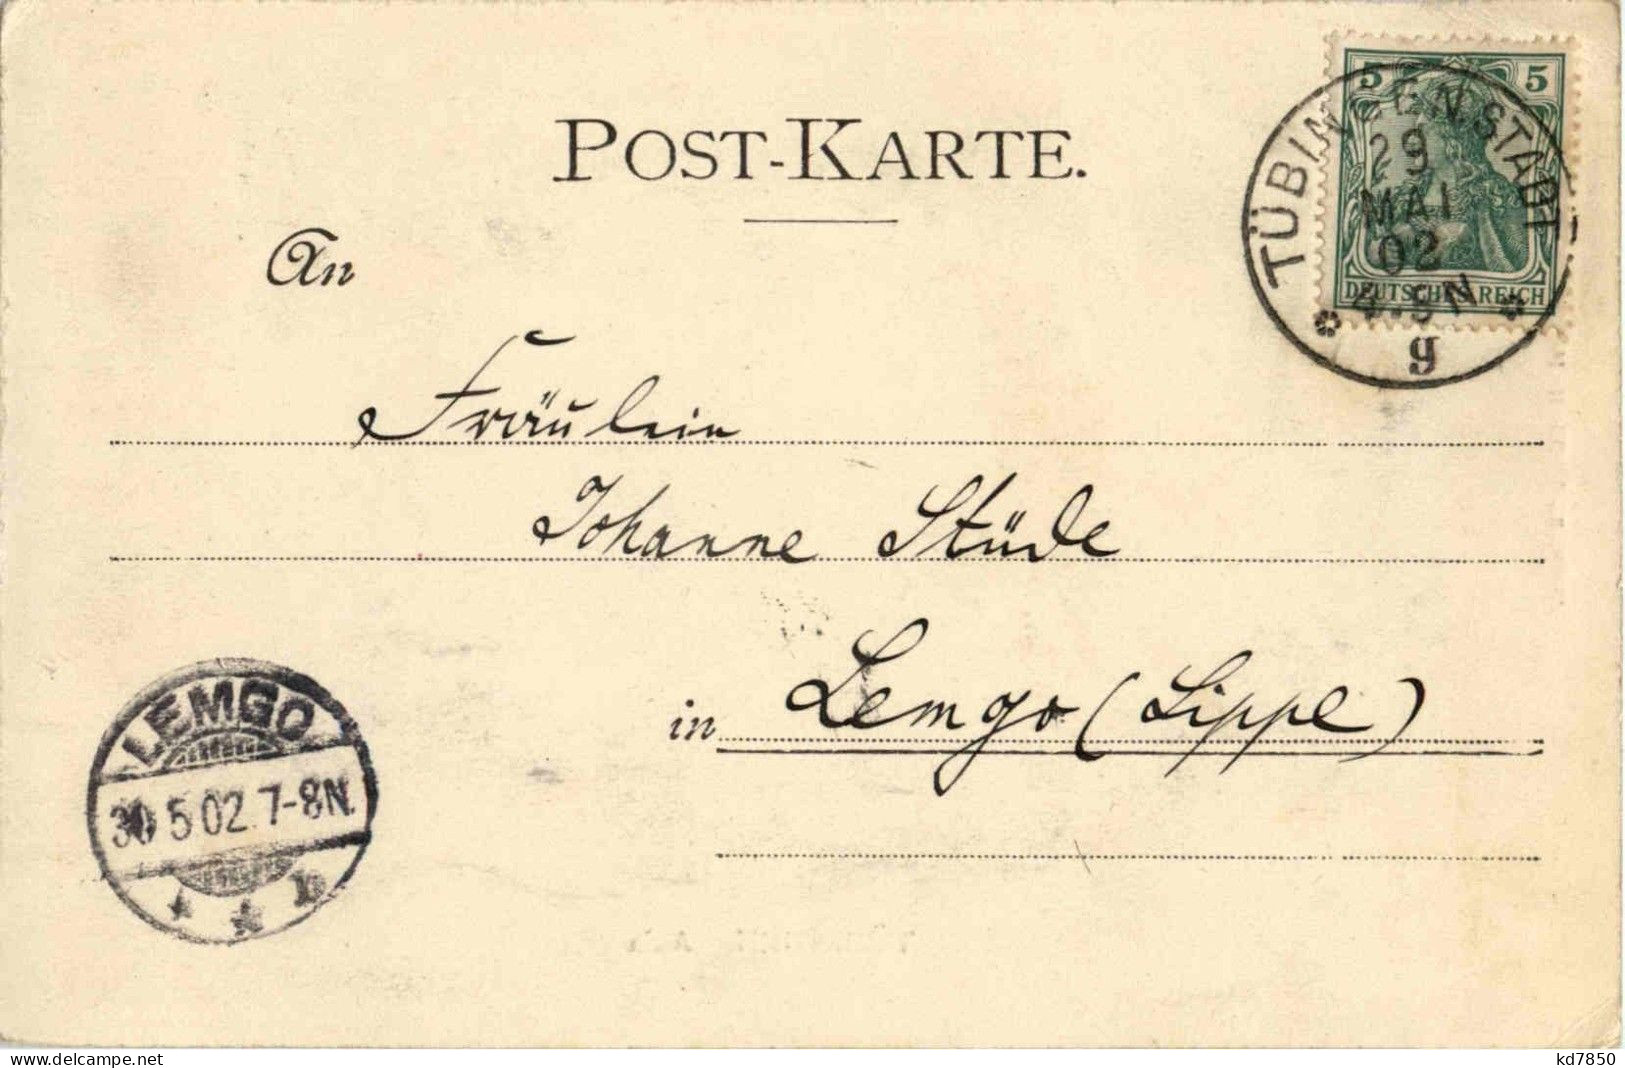 POST-KARTE.
5 5
DEUTSCHES REICH
TÜBINGEN.STADT
29
MAI
02
4-5N
g
An
Fräulein
Johanne Stüde
in Lemgo (Lippe)
LEMGO
30 5 02. 7-8N.
* * b
DELCAMPE.NET
kd7850